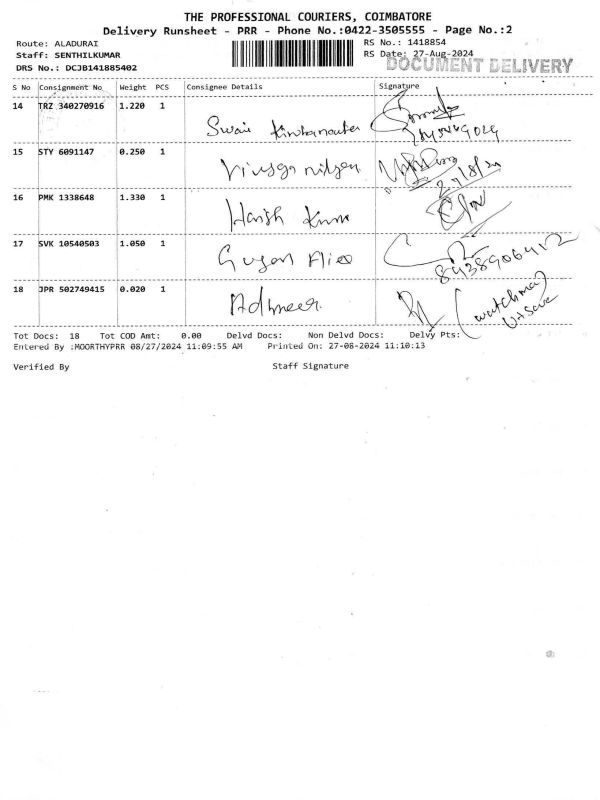 THE PROFESSIONAL COURIERS, COIMBATORE
Delivery Runsheet - PRR - Phone No.:0422-3505555 - Page No.:2
Route: ALADURAI
Staff: SENTHILKUMAR
DRS No.: DCJB141885402
RS No.: 1418854
RS Date: 27-Aug-2024
DOCUMENT DELIVERY
S No Consignment No Weight PCS Consignee Details Signature
14 TRZ 340270916 1.220 1
15 STY 6091147 0.250 1
27/8/24
16 PMK 1338648 1.330 1 Harish
17 SVK 10540503 1.050 1
8438906412
18 JPR 502749415 0.020 1
(watchman)
Tot Docs: 18 Tot COD Amt: 0.00 Delvd Docs: Non Delvd Docs: Delvy Pts:
Entered By :MOORTHYPRR 08/27/2024 11:09:55 AM Printed On: 27-08-2024 11:10:13
Verified By Staff Signature